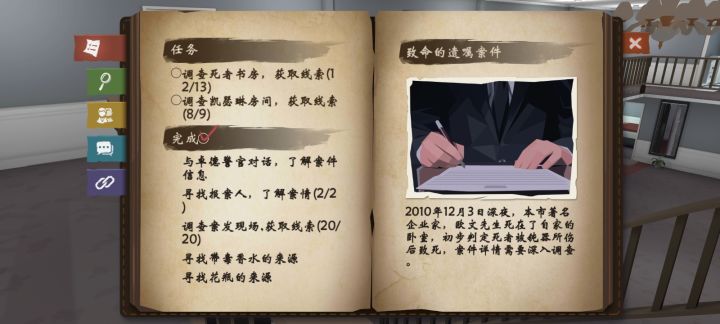 任务
调查死者书房，获取线索(1
2/13)
调查凯瑟琳房间，获取线索
(8/9)
完成
与卓德警官对话，了解案件
信息
寻找报案人，了解案情(2/2
)
调查案发现场,获取线索(20/
20)
寻找带毒香水的来源
寻找花瓶的来源
致命的遗嘱案件
2010年12月3日深夜，本市著名
企业家，欧文先生死在了自家的
卧室，初步判定死者被钝器所伤
后致死，案件详情需要深入调查
。